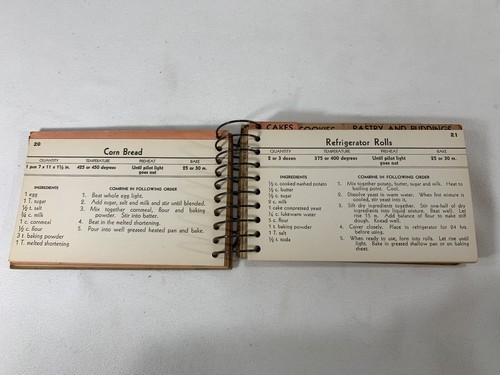 20
Corn Bread
QUANTITY TEMPERATURE PREHEAT BAKE
1 pan 7 x 11 x 1½ in. 425 or 450 degrees Until pilot light goes out 25 or 30 m.
INGREDIENTS
1 egg
1 T. sugar
½ t. salt
¾ c. milk
1 c. cornmeal
½ c. flour
3 t. baking powder
1 T. melted shortening
COMBINE IN FOLLOWING ORDER
1. Beat whole egg light.
2. Add sugar, salt and milk and stir until blended.
3. Mix together cornmeal, flour and baking
powder. Stir into batter.
4. Beat in the melted shortening.
5. Pour into well greased heated pan and bake.
CAKES COOKIES PASTRY AND PUDDINGS
21
Refrigerator Rolls
QUANTITY TEMPERATURE PREHEAT BAKE
2 or 3 dozen 375 or 400 degrees Until pilot light goes out 25 or 30 m.
INGREDIENTS
½ c. cooked mashed potato
½ c. butter
½ c. sugar
2 c. milk
1 cake compressed yeast
¼ c. lukewarm water
5 c. flour
1 t. baking powder
1 T. salt
½ t. soda
COMBINE IN FOLLOWING ORDER
1. Mix together potato, butter, sugar and milk. Heat to
boiling point. Cool.
2. Dissolve yeast in warm water. When first mixture is
cooled, stir yeast into it.
3. Sift dry ingredients together. Stir one-half of dry
ingredients into liquid mixture. Beat well. Let
rise 15 m. Add balance of flour to make stiff
dough. Knead well.
4. Cover closely. Place in refrigerator for 24 hrs.
before using.
5. When ready to use, form into rolls. Let rise until
light. Bake in greased shallow pan or on baking
sheet.